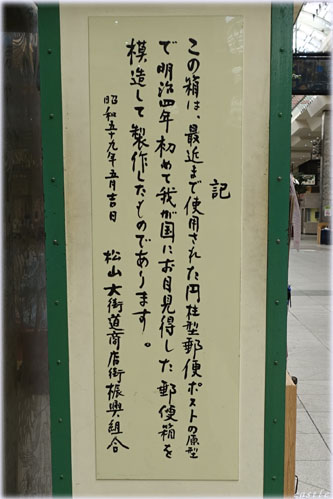 記
この箱は、最近まで使用された円柱型郵便ポストの原型
で明治四年初めて我が国にお目見得した郵便箱を
模造して製作したものであります。
昭和五十九年五月吉日
松山大街道商店街振興組合